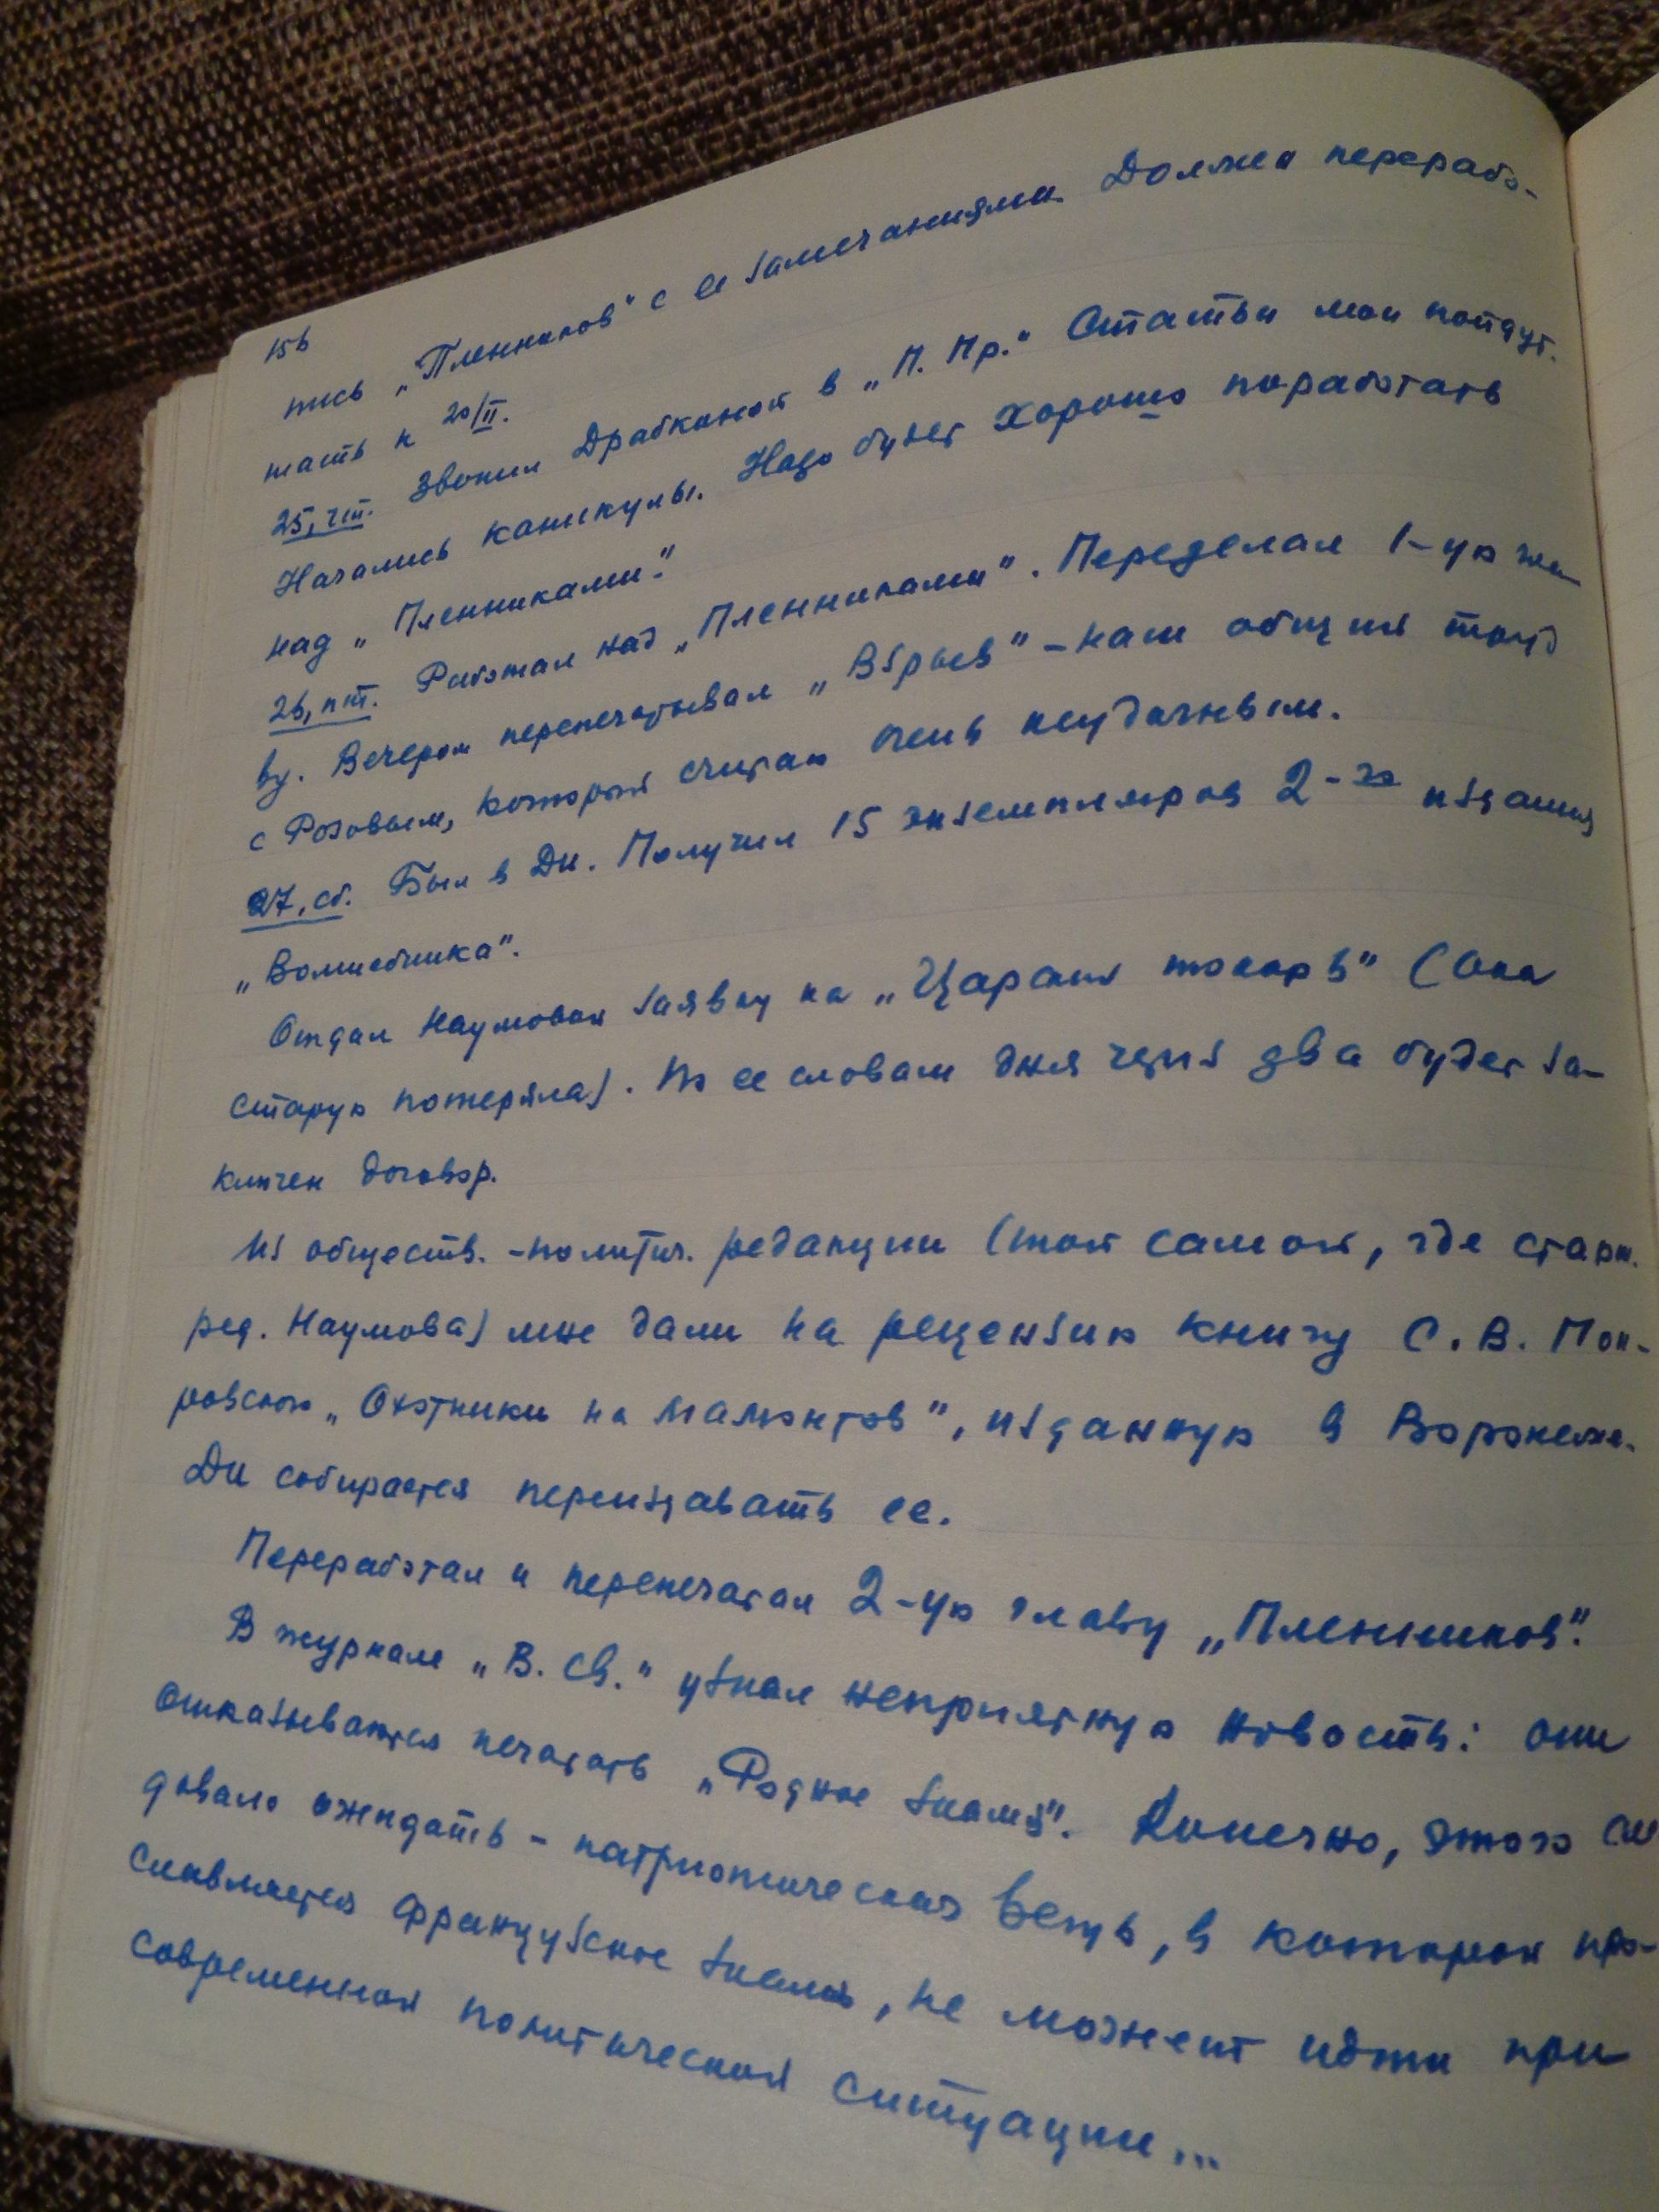 156
пись „Пленников" с ее замечаниями. Должен перерабо-
тать к 20/II.
25, чт. Звонил Драбкиной в „П. Пр." Статьи мои пойдут.
Начались каникулы. Надо будет хорошо поработать
над „Пленниками".
26, пт. Работал над „Пленниками". Переделал 1-ую гла
ву. Вечером перепечатывал „Взрыв" – наш общий труд
с Розовым, который считаю очень неудачным.
27, сб. Был в Ди. Получил 15 экземпляров 2-го издания
„Волшебника".
Отдал Наумовой заявку на „Царский токарь" (Она
старую потеряла). По ее словам дня через два будет за-
ключен договор.
Из обществ.-политич. редакции (той самой, где старш.
ред. Наумова) мне дали на рецензию книгу С. В. Пок-
ровского „Охотники на мамонтов", изданную в Воронеже.
Ди собирается переиздавать ее.
Переработал и перепечатал 2-ую главу „Пленников".
В журнале „В. Св." узнал неприятную новость: они
отказываются печатать „Родное знамя". Конечно, этого сле
довало ожидать – патриотическая вещь, в которой про-
славляется французское знамя, не может идти при
современной политической ситуации...